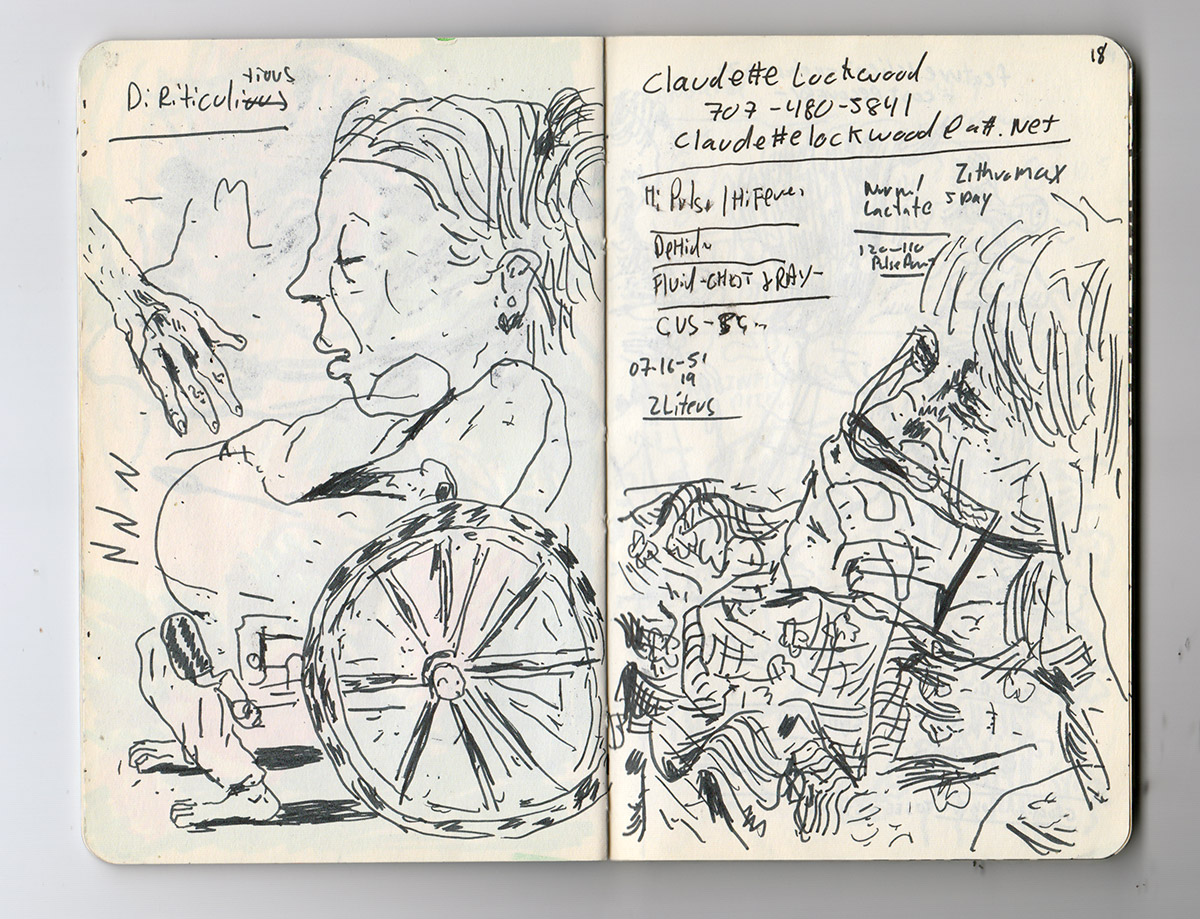 tious
DiRiticulious
N N N
18
Claudette Lockwood
707-480-5841
Claudettelockwood@att.net
Hi Pulse / Hi Fever
Normal
Lactate
Zithromax
5 DAY
DeHid
120-110
Pulse
Fluid - CHest XRAY -
CVS -
07-16-51
19
2Liters